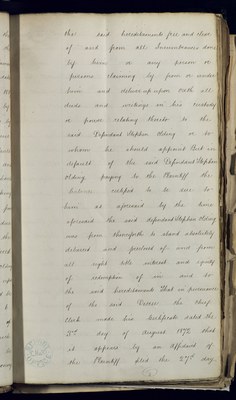 the said hereditaments free and clear
of and from all Incumbrances done
by him or any person or
persons claiming by from or under
him and deliver upon oath all
deeds and writings in his custody
or power relating thereto to the
said Defendant Stephen Olding or to
whom he should appoint But in
default of the said Defendant Stephen
Olding paying to the Plaintiff the
balance certified to be due to
him as aforesaid by the time
aforesaid the said defendant Stephen Olding
was from thenceforth to stand absolutely
debarred and foreclosed of and from
all right title interest and equity
of redemption of in and to
the said hereditaments That in pursuance
of the said Decree the Chief
Clerk made his Certificate dated the
day of August 1872 that
it appears by an Affidavit of
the Plaintiff filed the 27th day